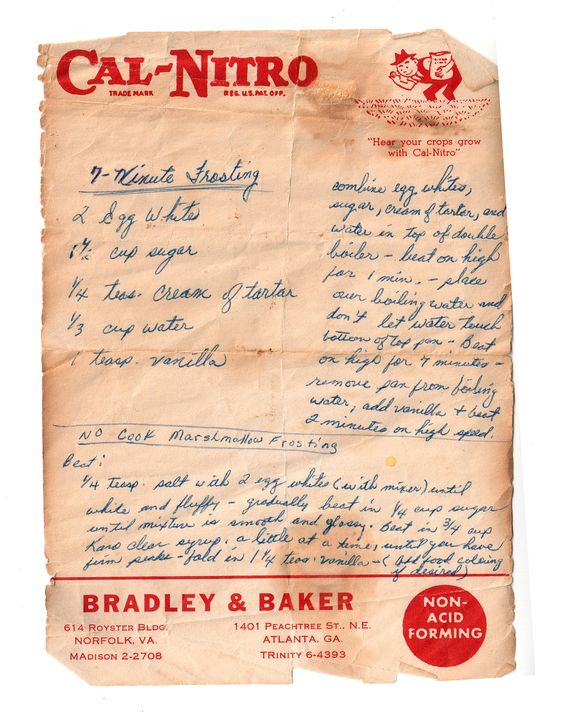 CAL-NITRO
TRADE MARK REG. U.S. PAT. OFF.
"Hear your crops grow
with Cal-Nitro"
7-Minute Frosting
2 Egg Whites
1 1/2 cup sugar
1/4 teas. Cream of tartar
1/3 cup water
1 teasp. vanilla
combine egg whites,
sugar, cream of tartar, and
water in top of double
boiler - beat on high
for 1 min. - place
over boiling water and
don't let water touch
bottom of top pan - Beat
on high for 7 minutes -
remove pan from boiling
water, add vanilla + beat
2 minutes on high speed.
NO Cook Marshmallow Frosting
Beat:
1/4 teasp. salt with 2 egg whites (with mixer) until
white and fluffy - gradually beat in 1/4 cup sugar
until mixture is smooth and glossy. Beat in 3/4 cup
Karo clear syrup, a little at a time, until you have
firm peaks - fold in 1 1/4 teas. vanilla - (add food coloring
if desired)
BRADLEY & BAKER
614 ROYSTER BLDG.
NORFOLK, VA.
MADISON 2-2708
1401 PEACHTREE ST., N.E.
ATLANTA, GA.
TRINITY 6-4393
NON-
ACID
FORMING